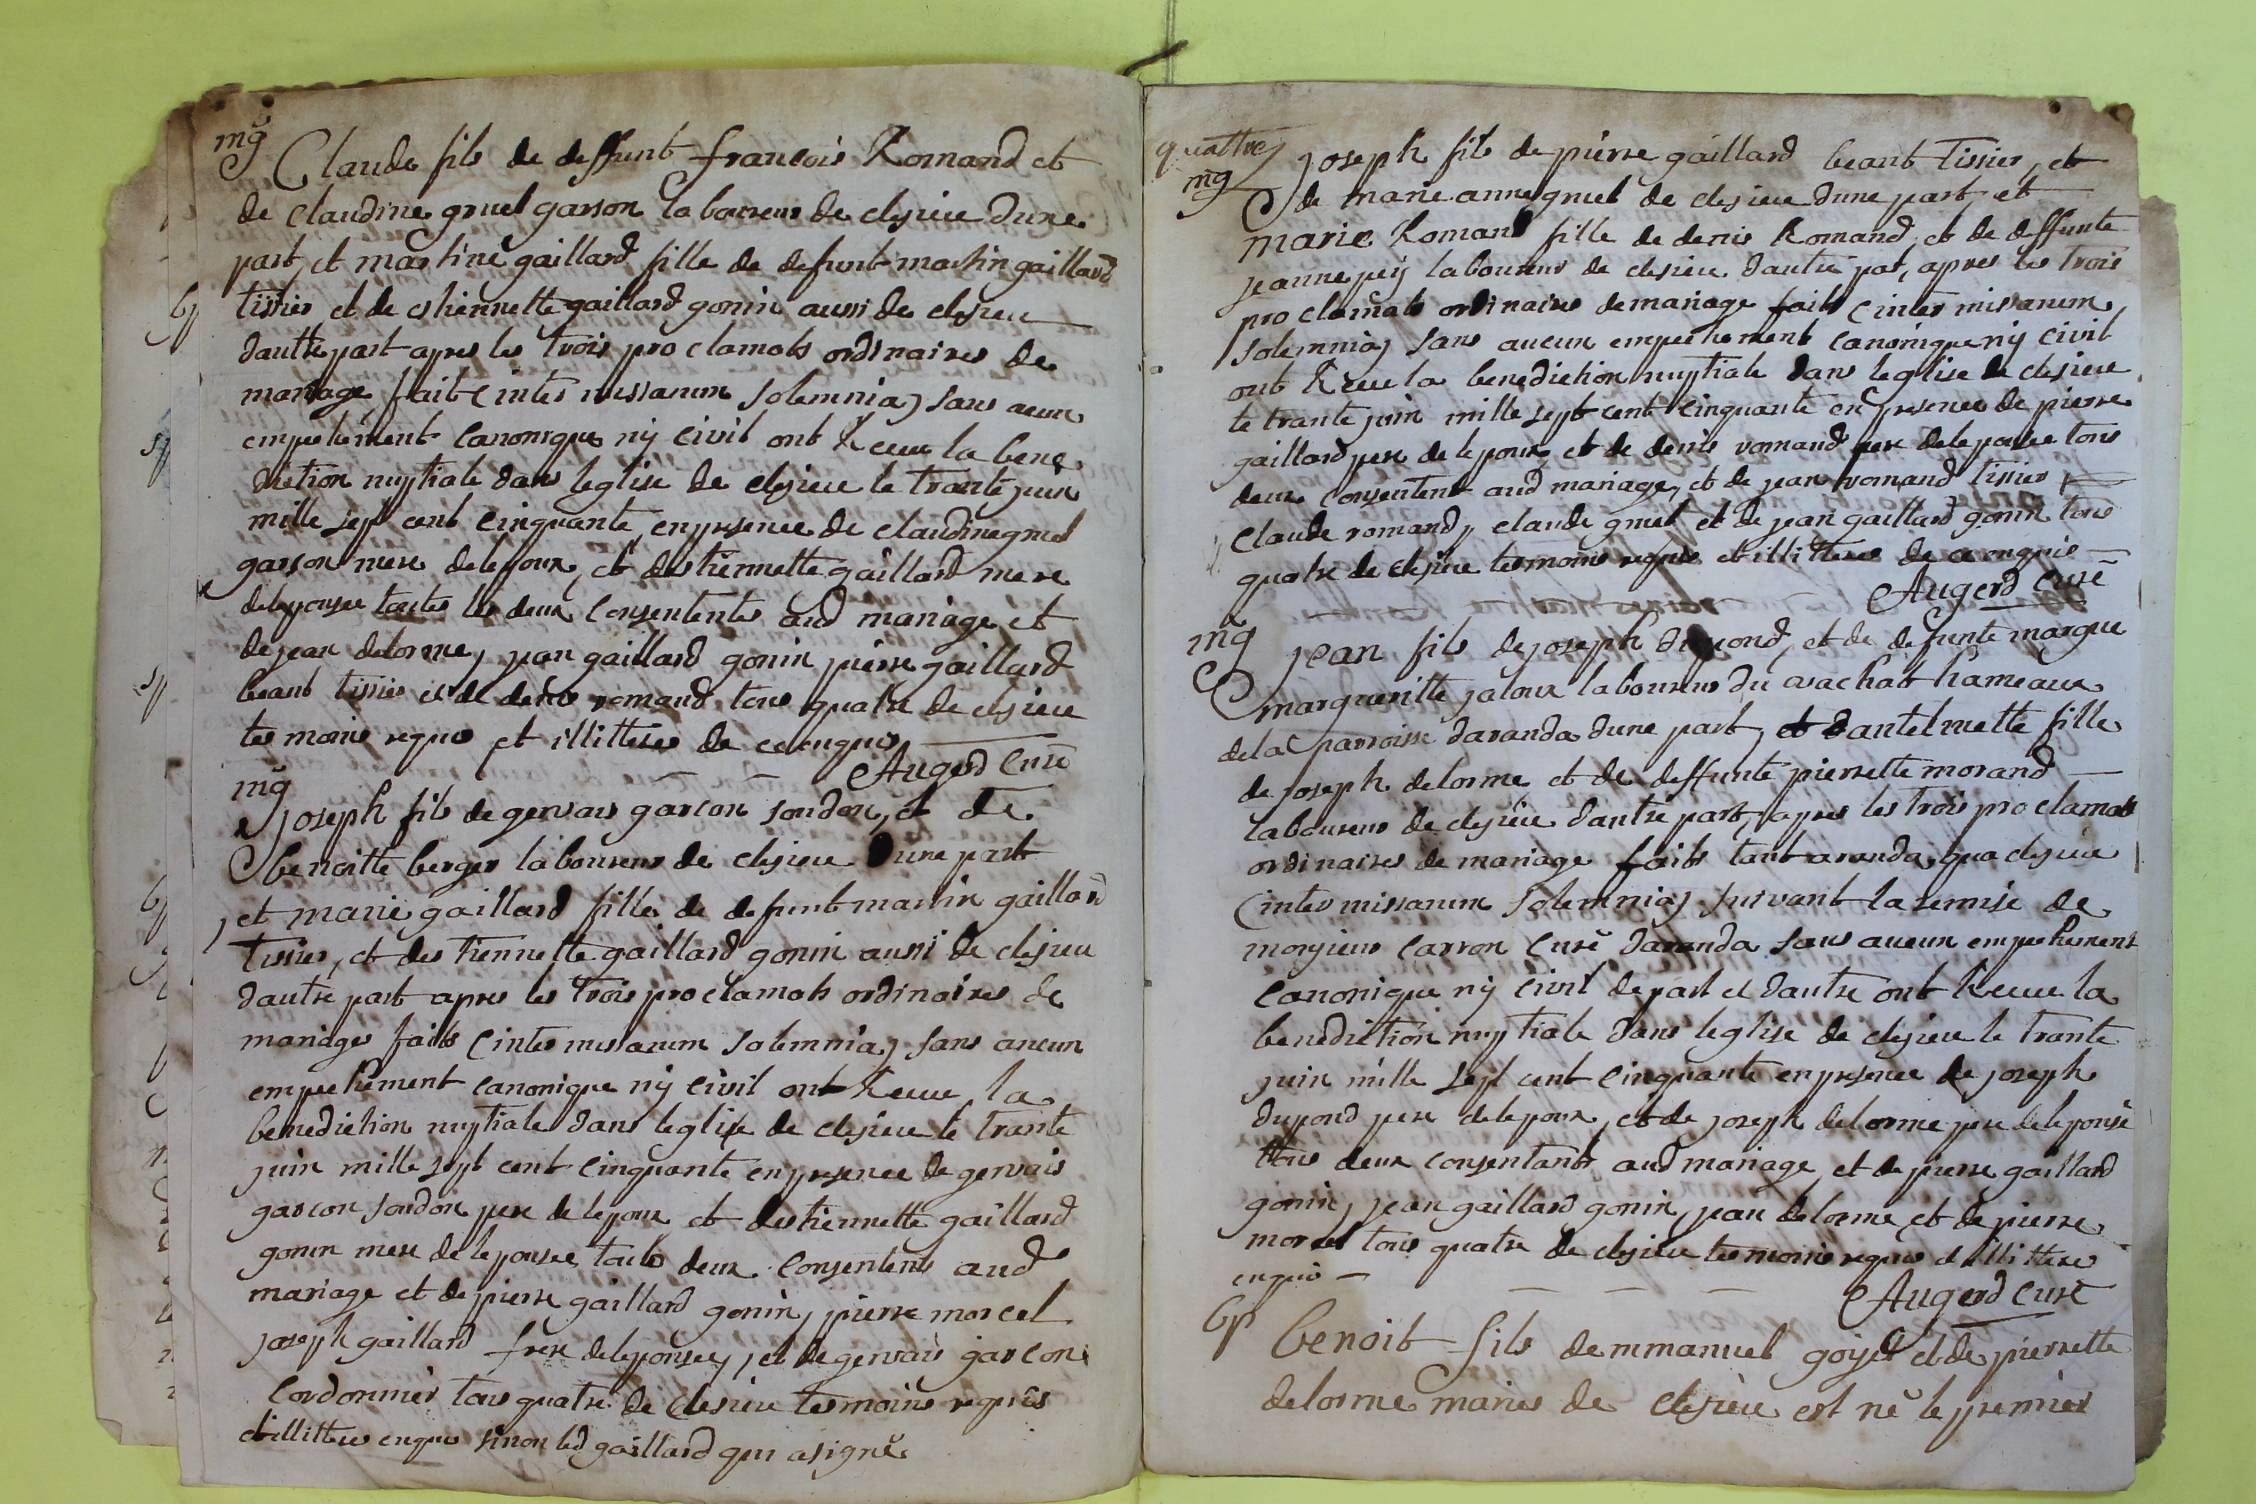 mg
Claude fils de deffunt francois Romand et
de claudine gruel garson laboureur de clesieu dune
part, et martine gaillard fille de defunt martin gaillard
tissier et de estiennette gaillard gonin aussi de clesieu
dautre part apres les trois proclamats ordinaires de
mariage fait (inter missarum solemnia) sans aucun
empechement canonique ny civil ont Receu la bene
diction nuptiale dans leglise de clesieu le trante juin
mille sept cent cinquante, en presence de claudine gruel
garson mere de lepoux, et destiennette gaillard mere
de lepousee toutes les deux consententes aud mariage et
de jean delorme, jean gaillard gonin pierre gaillard
beant tissier et de denis romand tous quatre de clesieu
temoins requis et illitteres de ce enquis
Augerd curé
mg
joseph fils de gervais garcon sondon, et de
benoitte berger laboureur de clesieu dune part
, et marie gaillard fille de defunt martin gaillard
tissier, et destiennette gaillard gonin aussi de clesieu
dautre part apres les trois proclamats ordinaires de
mariage faits (inter missarum solemnia) sans aucun
empechement canonique ny civil ont Receu la
benediction nuptiale dans leglise de clesieu le trante
juin mille sept cent cinquante en presence de gervais
garcon sondon pere de lepoux et destiennette gaillard
gonin mere de lepousee touts deux consentents aud
mariage et de pierre gaillard gonin, pierre morcel
joseph gaillard frere de lepousee, et de gervais garcon
cordonnier tous quatre de clesieu temoins requis
et illitteres enquis sinon led gaillard qui a signé
quattre
mg
joseph fils de pierre gaillard beant tissier, et
de marie anne gruel de clesieu dune part, et
marie Romand fille de denis Romand, et de deffunte
jeanne pey laboureur de clesieu dautre part, apres les trois
proclamats ordinaires de mariage faits (inter missarum
solemnia) sans aucun empechement canonique ny civil
ont Receu la benediction nuptiale dans leglise de clesieu
le trante juin mille sept cent cinquante en presence de pierre
gaillard pere de lepoux, et de denis romand pere de lepousee tous
deux consentent aud mariage, et de jean romand tissier
claude romand, claude gruel et de jean gaillard gonin tous
quatre de clesieu temoins requis et illitteres de ce enquis
Augerd curé
mg
jean fils de joseph dupond, et de defunte margue
margueritte jaloux laboureur du crachat hameaux
de la parroisse daranda dune part, et dantelmette fille
de joseph delorme et de deffunte pierrette morand
laboureur de clesieu dautre part, apres les trois proclamats
ordinaires de mariage faits tant aranda, qua clesieu
(inter missarum solemnia) suivant la remise de
monsieur carron curé daranda sans aucun empechement
canonique ny civil de part et dautre ont Receu la
benediction nuptiale dans leglise de clesieu le trante
juin mille sept cent cinquante en presence de joseph
dupond pere de lepoux, et de joseph delorme pere de lepousé
tous deux consentants aud mariage, et de pierre gaillard
gonin, jean gaillard gonin, jean delorme, et de pierre
morcel tous quatre de clesieu temoins requis et illittere
enquis
Augerd curé
bp
benoit fils demmanuel goyet et de pierrette
delorme maries de clesieu est né le premier